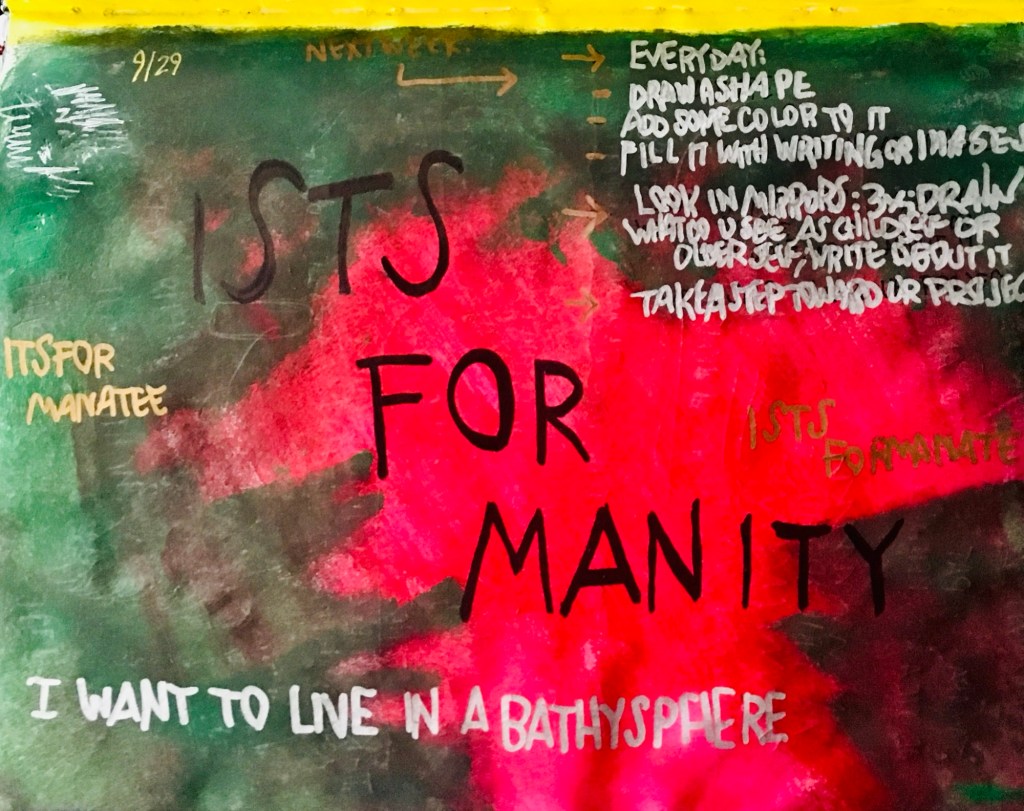 9/29
NEXT WEEK:
EVERYDAY:
DRAW A SHAPE
ADD SOME COLOR TO IT
FILL IT WITH WRITING OR IMAGES
LOOK IN MIRRORS: DRAW
WHAT DO U SEE, AS CHILD SELF OR
OLDER SELF, WRITE ABOUT IT
TAKE A STEP TOWARD UR PROJEC
ISTS
FOR
MANITY
ITS FOR
MANATEE
ISTS
FORMANATE
I WANT TO LIVE IN A BATHYSPHERE